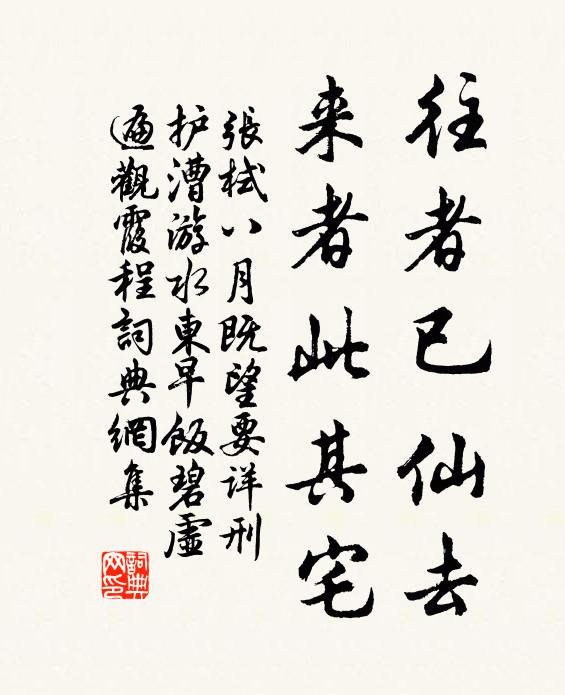 往者已仙去
来者此其宅
張栻八月既望要详刑
护漕游水東早飯碧虛
遍觀霞程詞典網集
詞典网印